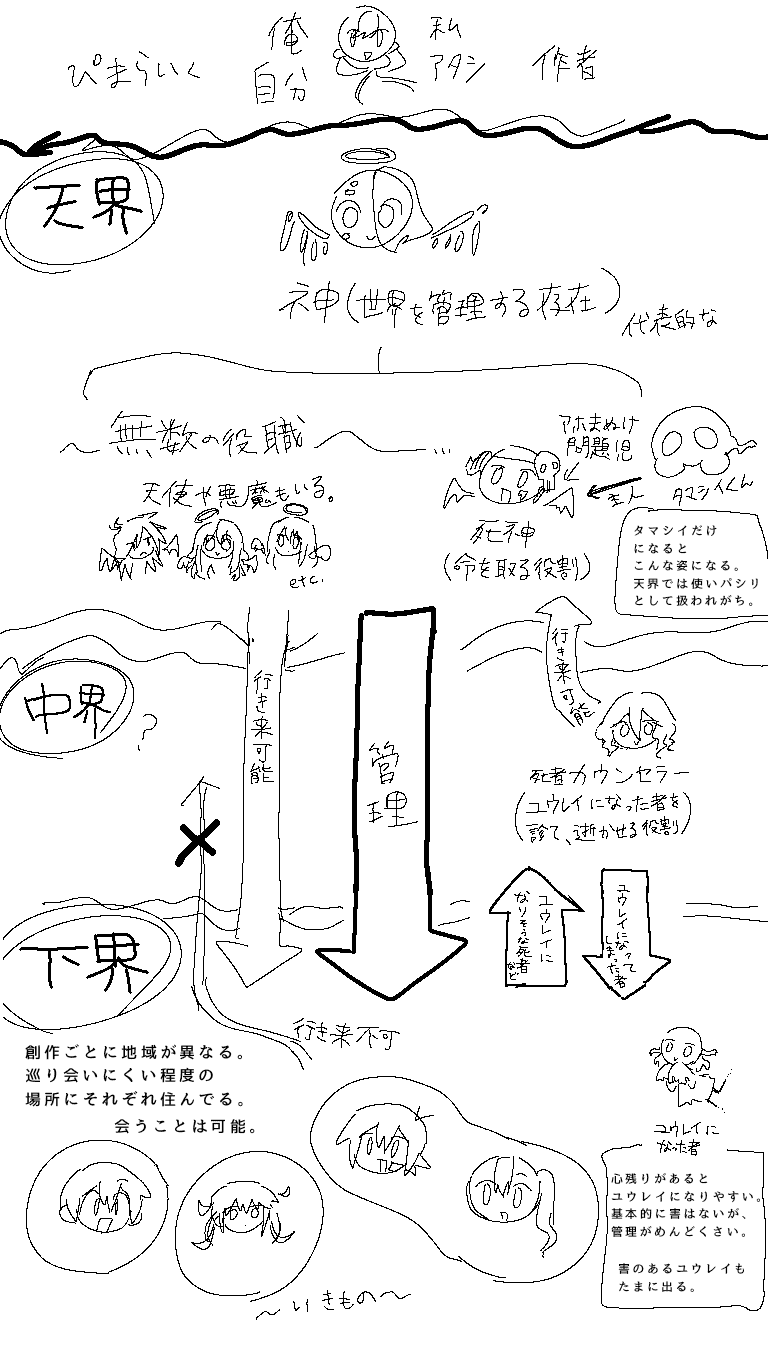 ぴまらいく
俺
自分
私
アタシ
作者
天界
神(世界を管理する存在)
代表的な
～無数の役職～…
天使や悪魔もいる。
etc.
アホまぬけ
問題児
主人
タマシイくん
死神
(命を取る役割)
タマシイだけ
になると
こんな姿になる。
天界では使いパシリ
として扱われがち。
中界
?
行き来可能
管理
行き来可能
死者カウンセラー
(ユウレイになった者を
診て、逝かせる役割)
下界
ユウレイに
なりそうな死者
など
ユウレイになって
しまった者
行き来不可
創作ごとに地域が異なる。
巡り会いにくい程度の
場所にそれぞれ住んでる。
会うことは可能。
ユウレイに
なった者
心残りがあると
ユウレイになりやすい。
基本的に害はないが、
管理がめんどくさい。
害のあるユウレイも
たまに出る。
～いきもの～